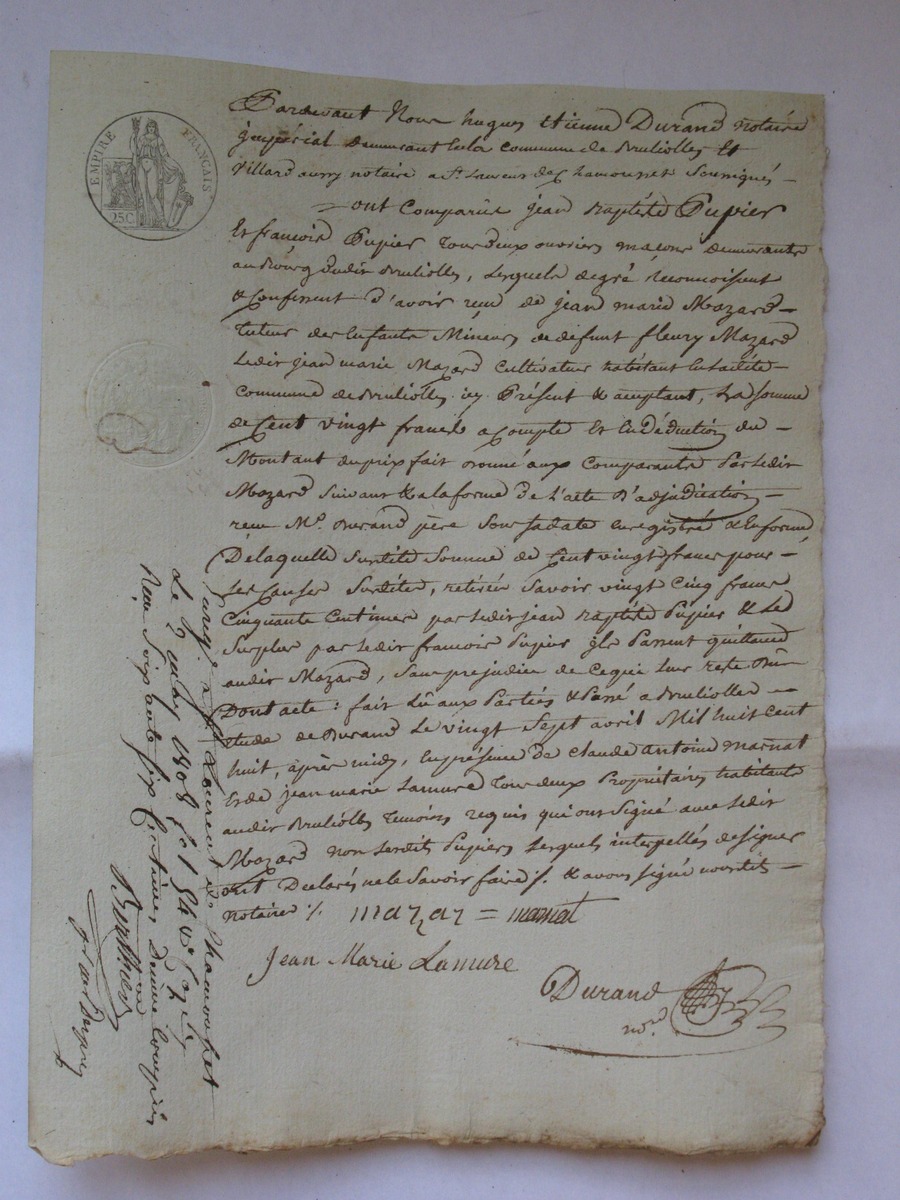 EMPIRE FRANÇAIS
25C
Pardevant Nous hugues etienne Durand notaire
jmpérial demeurant en la commune de Brulioles Et
Villard aussy notaire a St Laurens de Chamousset Soussignés
ont Comparûs jean Baptiste Pupier
Et francois Pupier tous deux ouvriers maçons demeurants
au Bourg dudit Brulioles, Lesquels de gré reconnoissent
& Confessent d'avoir reçu de jean marie Mazard
tuteur des Enfants Mineurs de defunt fleury Mazard
Ledit jean marie Mazard Cultivateur habitant en ladite
Commune de Brulioles icy Présent & aceptant, La somme
de Cent vingt francs a Compte Et en Déduction du
Montant du prix fait donné aux Comparants Par ledit
Mazard Suivant & a la forme de L'acte D'adjudication
reçu Me Durand père Sous sa date enregistré & En forme,
De laquelle Surdite Somme de Cent vingt francs pour
Les Causes Surdites, retirée Savoir vingt Cinq francs
Cinquante Centimes par ledit jean Baptiste Pupier & Le
Surplus par ledit francois Pupier jls Passent quittance
audit Mazard, Sans prejudice de Ce qui leur reste Dû
Dont acte : fait Lû aux Parties & Passé a Brulioles
étude de Durand Le vingt Sept avril Mil huit Cent
huit, après midy, En présence de Claude antoine marnat
Et de jean marie Lamure tous deux Propriétaires habitants
audit Brulioles temoins requis qui ont Signé avec ledit
Mazard non Lesdits Pupiers Lesquels interpellés de signer
ont Déclarés ne le Savoir faire ./. & avons signé nousdits
notaires ./. mazar = marnat
Jean Marie Lamure
Durand
nore
Enreg. a St Laurent de Chamousset
Le 2 1808 fo 154 Vo
Reçu Soixante Six Centimes Dixième Compris